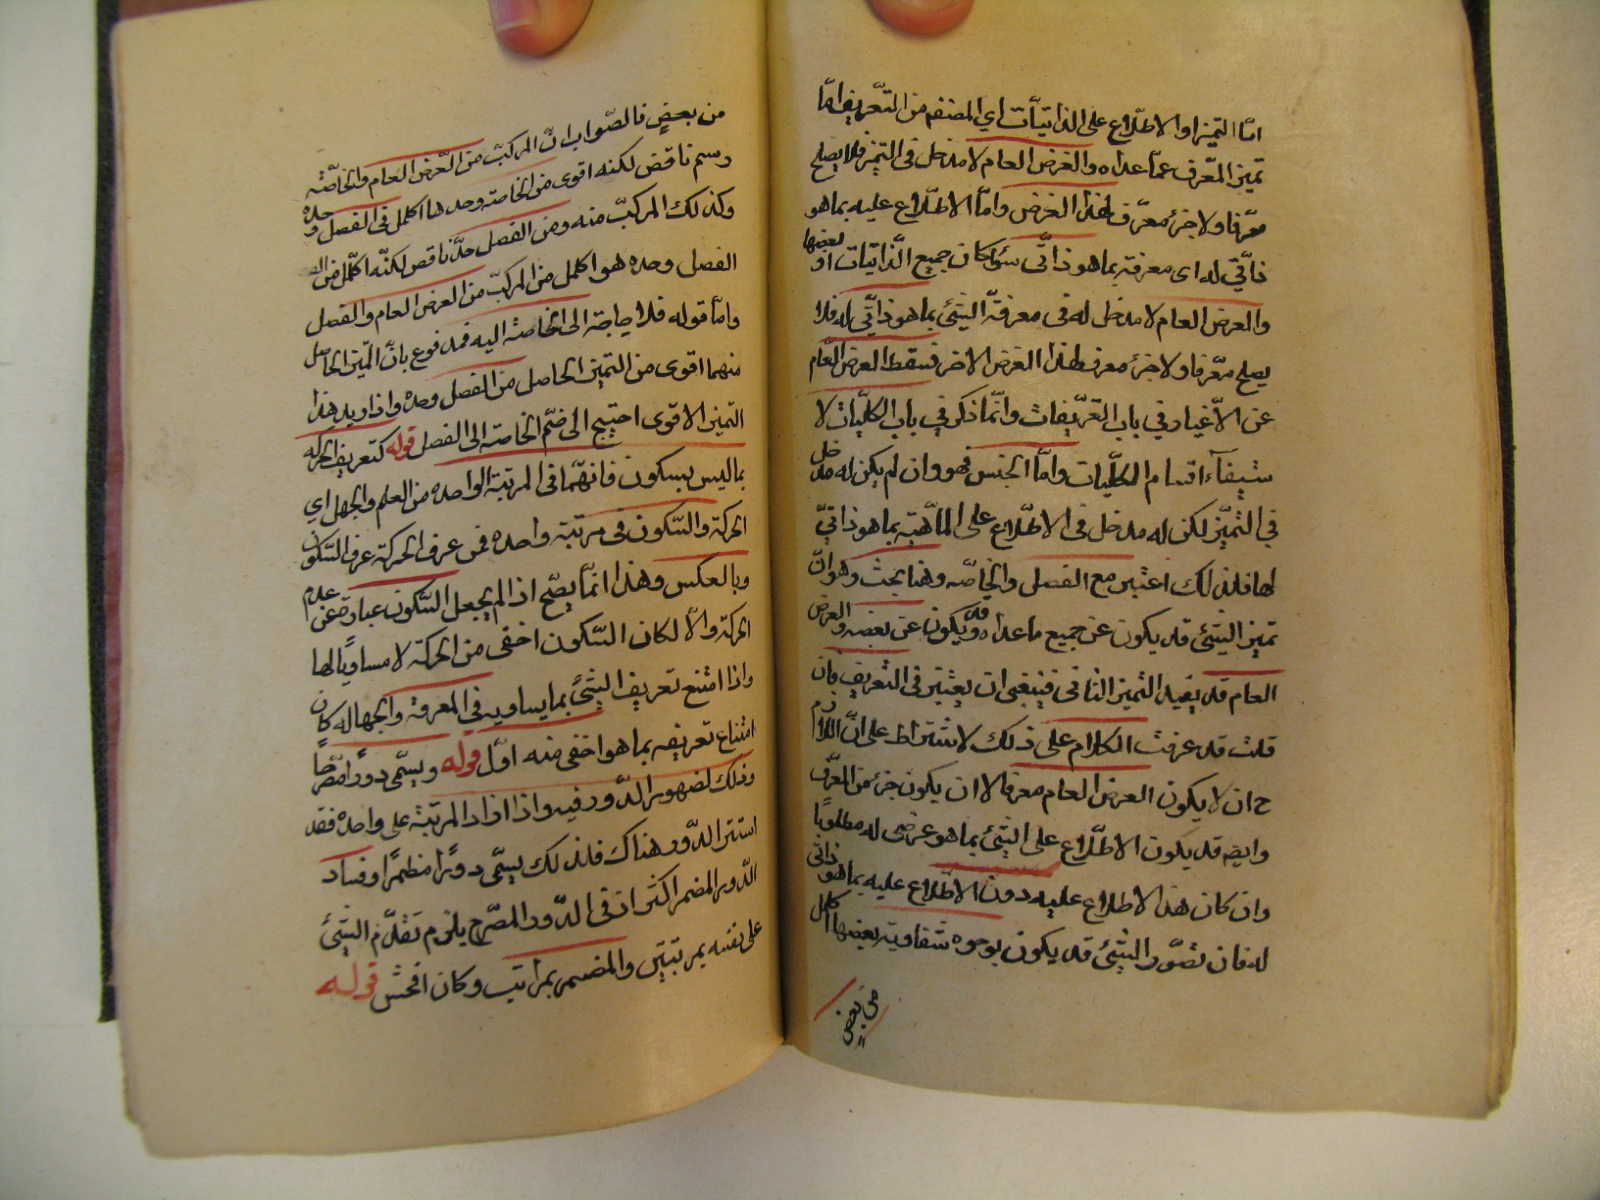 امّا التميز او الاطّلاع على الذاتيّات اي المقصود من التّعريف امّا
تميز المعّرف عمّا عداه والعرض العام لا مدخل له في التميز فلا يصلح
معّرفا ولا جزء معّرف لهذا الغرض وامّا الاطّلاع عليه بما هو
ذاتّي له اى معرفته بما هو ذاتّى سؤ كان جميع الذّاتيات او بعضها
والعرض العام لا مدخل له فى معرفة الشئ بما هو ذاتّي له فلا
يصلح معّرفا ولا جزء معرف لهذا الغرض الاخر فسقط العرض العّام
عن الاعتبار فى باب التعّريفات وانّما ذكر في باب الكليّات لا
ستيفآء اقسام الكلّيات وامّا الجنس فهو وان لم يكن له مدخل
في التميّز لكن له مدخل فى الاطّلاع على الماهّية بما هو ذاتيّ
لها فلذلك اعتبر مع الفصل والخاصّه وهنا بحث وهو انّ
تميز الشئ قد يكون عن جميع ما عداه وقد يكون عن بعضه والعرض
العام قد يفيد التميز الثانى فينبغى ان يعتبر فى التعريف فان
قلت قد عرفت الكلام على ذلك لاشتراط على انّ اللازم
ح ان لا يكون العرض العام معرفا لا ان يكون جزء من المعّرف
وايضه قد يكون الاطّلاع على الشئ بما هو عرضى له مطلوبًا
وان كان هذا الاطلاع عليه دون الاطّلاع عليه بما هو ذاتى
له فان تصّور الشئ قد يكون بوجوه متفاوتة بعضها اكمل
من بعضٍ
من بعضٍ فالصّواب انّ المركبّ من العرض العام والخاصّة
رسم ناقص لكنه اقوى من الخاصة وحدها اكمل فى الفصل وحده
وكذلك المركبّ منه ومن الفصل حدّ ناقص لكنّه اكمّل من
الفصل وحده هو اكمل من المركبّ من العرض العام والفصل
وامّا قوله فلا حاجة الى الخاصّة اليه فمدفوع بانّ التمّيز الحاصل
منهما اقوى من التميّز الحاصل من الفصل وحده واذا ويد هذا
التميز الاقوى احتيج الى ضمّ الخاصة الى الفصل قوله كتعريف الحركه
بما ليس بسكون فانهّما فى المرتبة الواحده من العلم والجهل اي
الحركة والسّكون فى مرتبة واحده فمن عرف الحركة عرف السّكون
وبالعكس وهذا انمّا يصّح اذ الم يجعل السّكون عبارة عن عدم
الحركة والّا لكان السّكون اخفى من الحركة لا مساويًا لها
واذا امتنع تعريف الشئ بما يساويه في المعرفة والجهاله كان
امتناع تعريفه بما هو اخفى منه اوّل قوله ويسمّى دورًا مصّرحًا
وذلك لضهور الدّور فيه واذا ازاد المرتبة على واحده فقد
استتر الدّور هناك فلذلك يسمّى دورًا مضمرًا وفساد
الدّور المضمر اكثر اذ فى الدّور المصّرح يلزم تقدّم الشئ
على نفسه بمرتبتين والمضمر بمراتب وكان افحش قوله